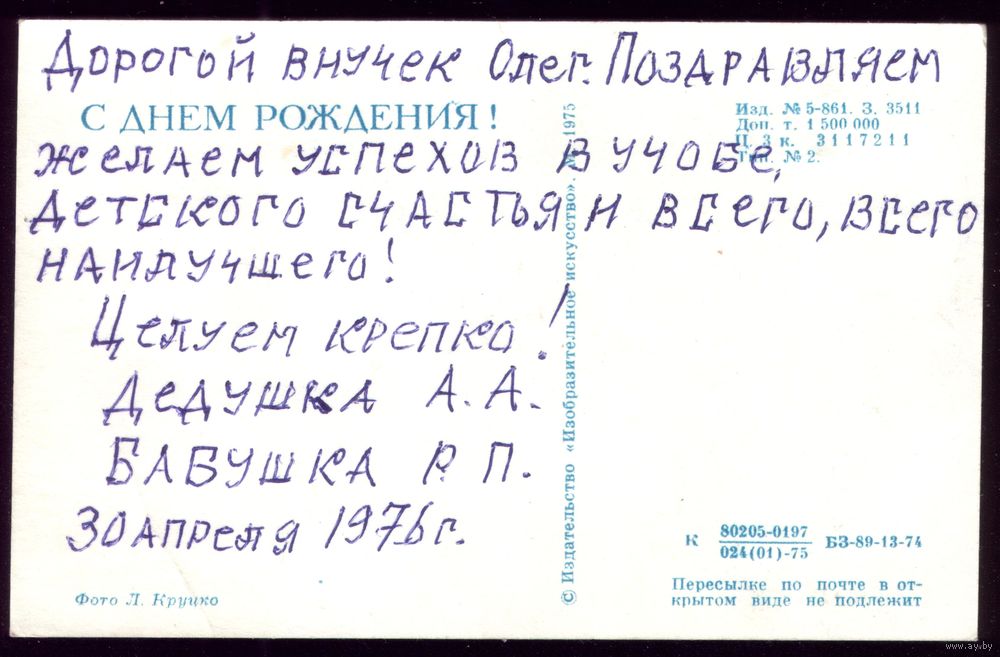 Дорогой внучек Олег. Поздравляем
С ДНЕМ РОЖДЕНИЯ!
Изд. № 5-861. З. 3511
Доп. т. 1 500 000
Ц. 3 к. 3117211
Тип. № 2.
желаем успехов в учобе,
детского счастья и всего, всего
наилучшего!
Целуем крепко!
Дедушка А. А.
Бабушка Р. П.
30 апреля 1976 г.
Фото Л. Круцко
© Издательство «Изобразительное искусство». 1975
К 80205-0197
024(01)-75 БЗ-89-13-74
Пересылке по почте в от-
крытом виде не подлежит
www.ay.by